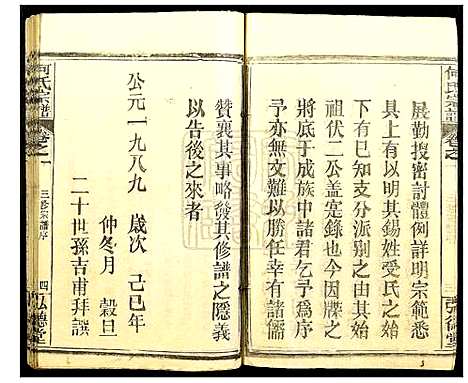 何氏宗譜
卷之一
三
弘德堂
展勤搜密討體例詳明宗範悉
具上有以明其錫姓受氏之始
下有以知支分派别之由
祖伏二公蓋寔錄也今因牒之
將底于成族中諸君乞予爲序
予亦無文難以勝任幸有諸儒
贊襄其事略發其修譜之隱義
以告後之來者
公元一九八九 歲次 己巳年
仲冬月 穀旦
二十世孫吉甫拜譔
何氏宗譜
卷之一
三修宗譜序
四
弘德堂